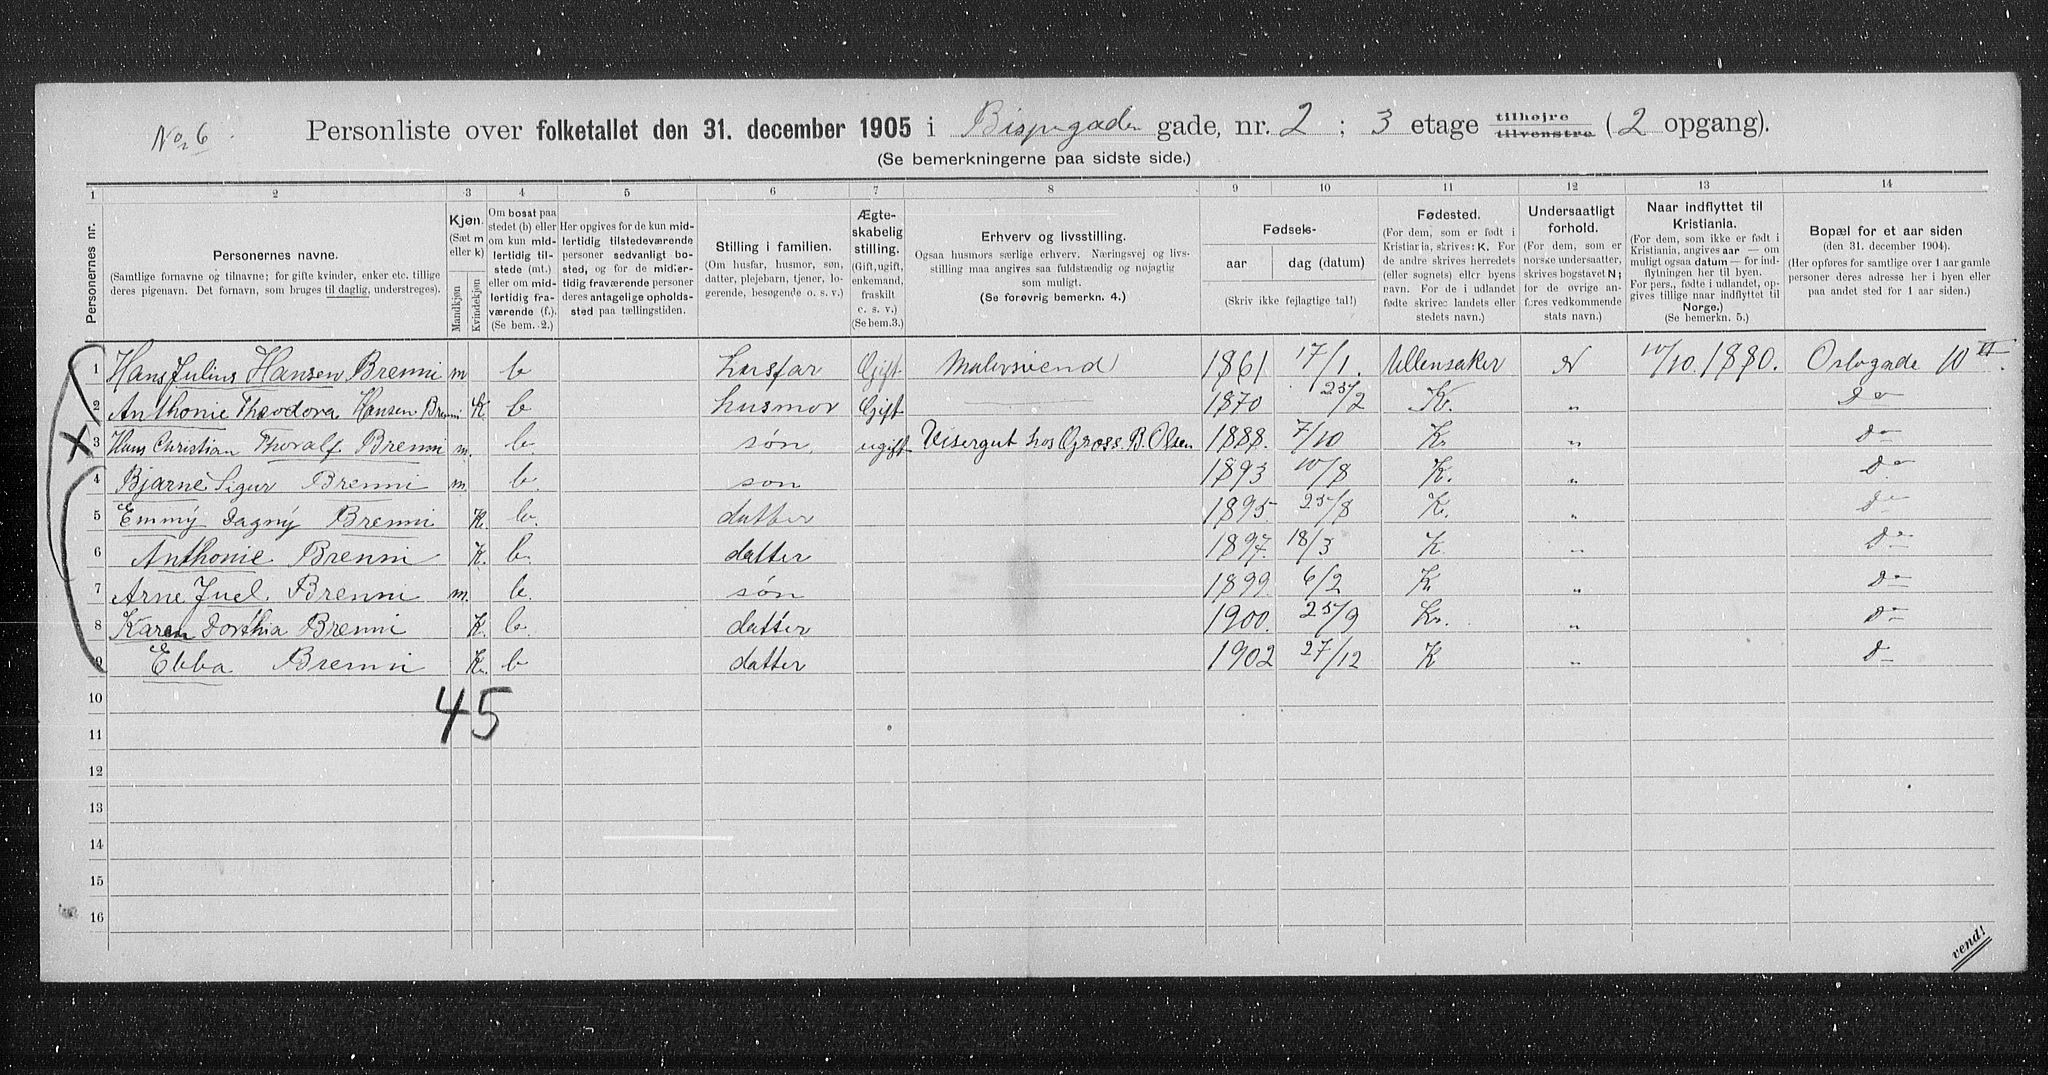 No 6. Personliste over folketallet den 31. december 1905 i Bispegaden gade, nr. 2 ; 3 etage tilhøjre tilvenstre (2 opgang).
(Se bemerkningerne paa sidste side.)
1 2 3 4 5 6 7 8 9 10 11 12 13 14
Personernes nr.
Personernes navne.
(Samtlige fornavne og tilnavne; for gifte kvinder, enker etc. tillige
deres pigenavn. Det fornavn, som bruges til daglig, understreges).
Kjøn.
(Sæt m
eller k)
Mandkjøn
Kvindekjøn
Om bosat paa
stedet (b) eller
om kun mid-
lertidig til-
stede (mt.)
eller om mid-
lertidig fra-
værende (f.).
(Se bem. 2.)
Her opgives for de kun mid-
lertidig tilstedeværende
personer sedvanligt bo-
sted, og for de midler-
tidig fraværende personer
deres antagelige opholds-
sted paa tællingstiden.
Stilling i familien.
(Om husfar, husmor, søn,
datter, plejebarn, tjener, lo-
gerende, besøgende o. s. v.)
Ægte-
skabelig
stilling.
(Gift, ugift,
enkemand,
fraskilt
c. s. v.)
(Se bem.3.)
Erhverv og livsstilling.
Ogsaa husmors særlige erhverv. Næringsvej og livs-
stilling maa angives saa fuldstændig og nøjagtig
som muligt.
(Se forøvrig bemerkn. 4.)
Fødsels-
aar dag (datum)
(Skriv ikke fejlagtige tal!)
Fødested.
(For dem, som er født i
Kristiania, skrives: K. For
de andre skrives herredets
(eller sognets) eller byens
navn. For de i udlandet
fødte skrives landets eller
stedets navn.)
Undersaatligt
forhold.
(For dem, som er
norske undersaatter,
skrives bogstavet N;
for de øvrige an-
føres vedkommende
stats navn.)
Naar indflyttet til
Kristiania.
(For dem, som ikke er født i
Kristiania, angives aar — om
muligt ogsaa datum — for ind-
flytningen her til byen.
For pers., fødte i udlandet, op-
gives tillige naar indflyttet til
Norge.)
(Se bemerkn. 5.)
Bopæl for et aar siden
(den 31. december 1904).
(Her opføres for samtlige over 1 aar gamle
personer deres adresse her i byen eller
paa andet sted for 1 aar siden.)
1 Hans Julius Hansen Brenni m b husfar Gift Malersvend 1861 17/1. Ullensaker N 10/10. 1880. Oslogade 10 VI.
2 Anthonie Theodora Hansen Brenni K b husmor Gift 1870 25/2 K. „ Do
3 Hans Christian Thoralf Brenni m. b. søn, ugift Visergut hos Gross. B. Olsen 1888. 7/10 K. „ Do
4 Bjarne Sigur Brenni m b. søn 1893 10/8 K. „ Do
5 Emmy Dagny Brenni K. b. datter 1895. 25/8 K. „ Do
6 Anthonie Brenni K. b. datter 1897. 18/3 K „ Do
7 Arne Juel. Brenni m. b. søn 1899. 6/2 K „ Do
8 Karen Dorthia Brenni K. b. datter 1900. 25/9 K. „ Do
9 Ebba Brenni K. b datter 1902 27/12 K „ Do
10
45
11
12
13
14
15
16
vend!